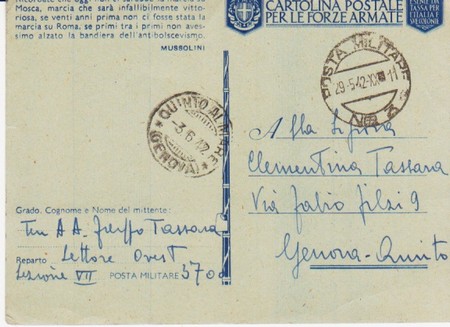 Mosca, marcia che sarà infallibilmente vitto-
riosa, se venti anni prima non ci fosse stata la
marcia su Roma, se primi tra i primi non aves-
simo alzato la bandiera dell'antibolscevismo.
MUSSOLINI
CARTOLINA POSTALE
PER LE FORZE ARMATE
ESENTE DA
TASSA PER
L'ITALIA E
POSTA MILITARE
29·5·42·XX 11
QUINTO AL MARE
-3 6 42
(GENOVA)
Alla Sig.ra
Clementina Tassara
Via Fabio Filzi 9
Genova-Quinto
Grado, Cognome e Nome del mittente:
Ten A.A. Tassara
Reparto Settore Ovest
Sezione VII POSTA MILITARE 3700